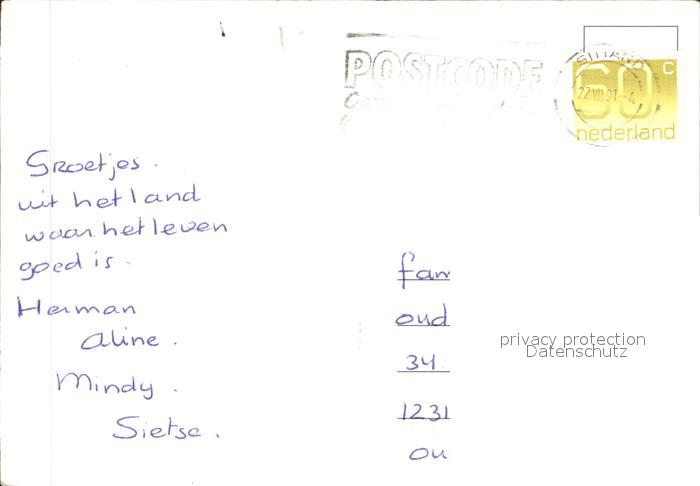 POSTCODE
SITTARD
22 VII 91 - 4
60 c
nederland
Groetjes.
uit het land
waar het leven
goed is.
Herman
Aline.
Mindy.
Sietse.
fam
oud
34
1231
ou
privacy protection
Datenschutz